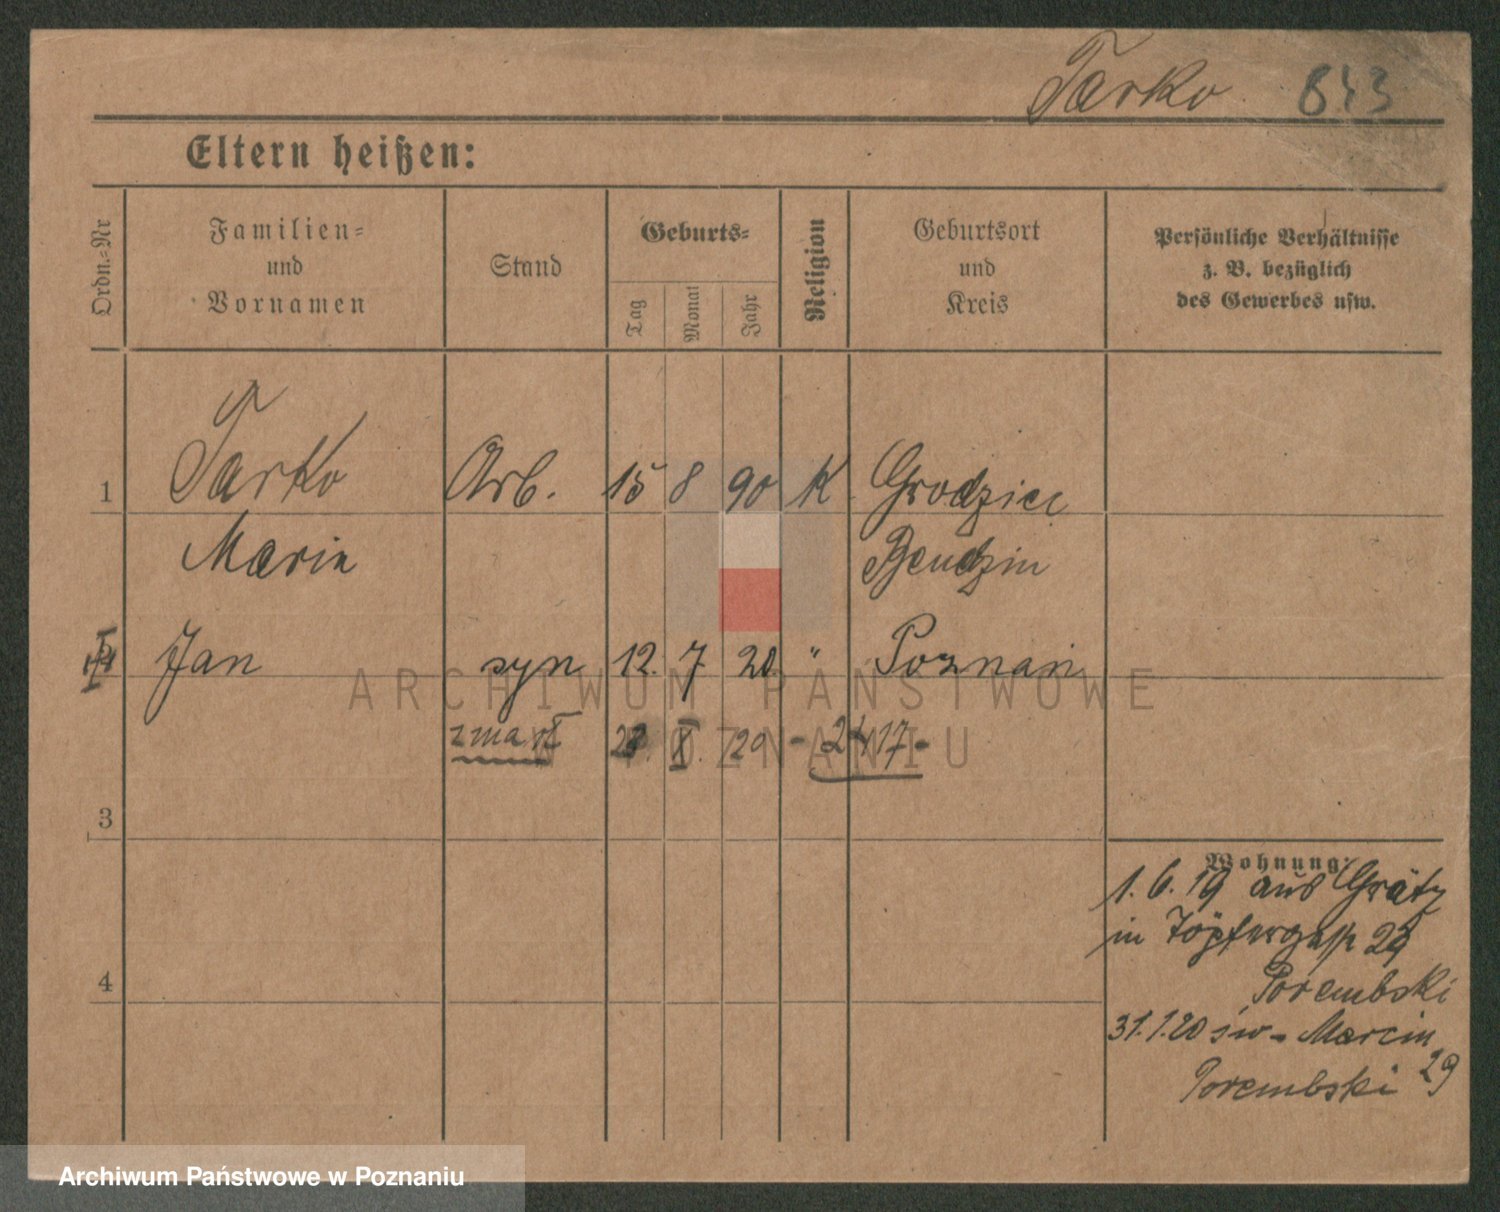 Tarko 843
Eltern heißen:
Ordn.-Nr
Familien- und Vornamen
Stand
Geburts-
Tag
Monat
Jahr
Religion
Geburtsort und Kreis
Persönliche Verhältnisse
z. B. bezüglich
des Gewerbes usw.
1 Tarko Arb. 15 8 90 K. Grodziec
Marie Bendzin
Jan syn 12. 7 20. " Poznań
zmarł X. 29 - 2417 -
3
4
Wohnung:
1. 6. 19 aus Grätz
in Töpfergasse 29
Porembski
31.1.20 św. Marcin 29
Porembski
ARCHIWUM PAŃSTWOWE
W POZNANIU
Archiwum Państwowe w Poznaniu